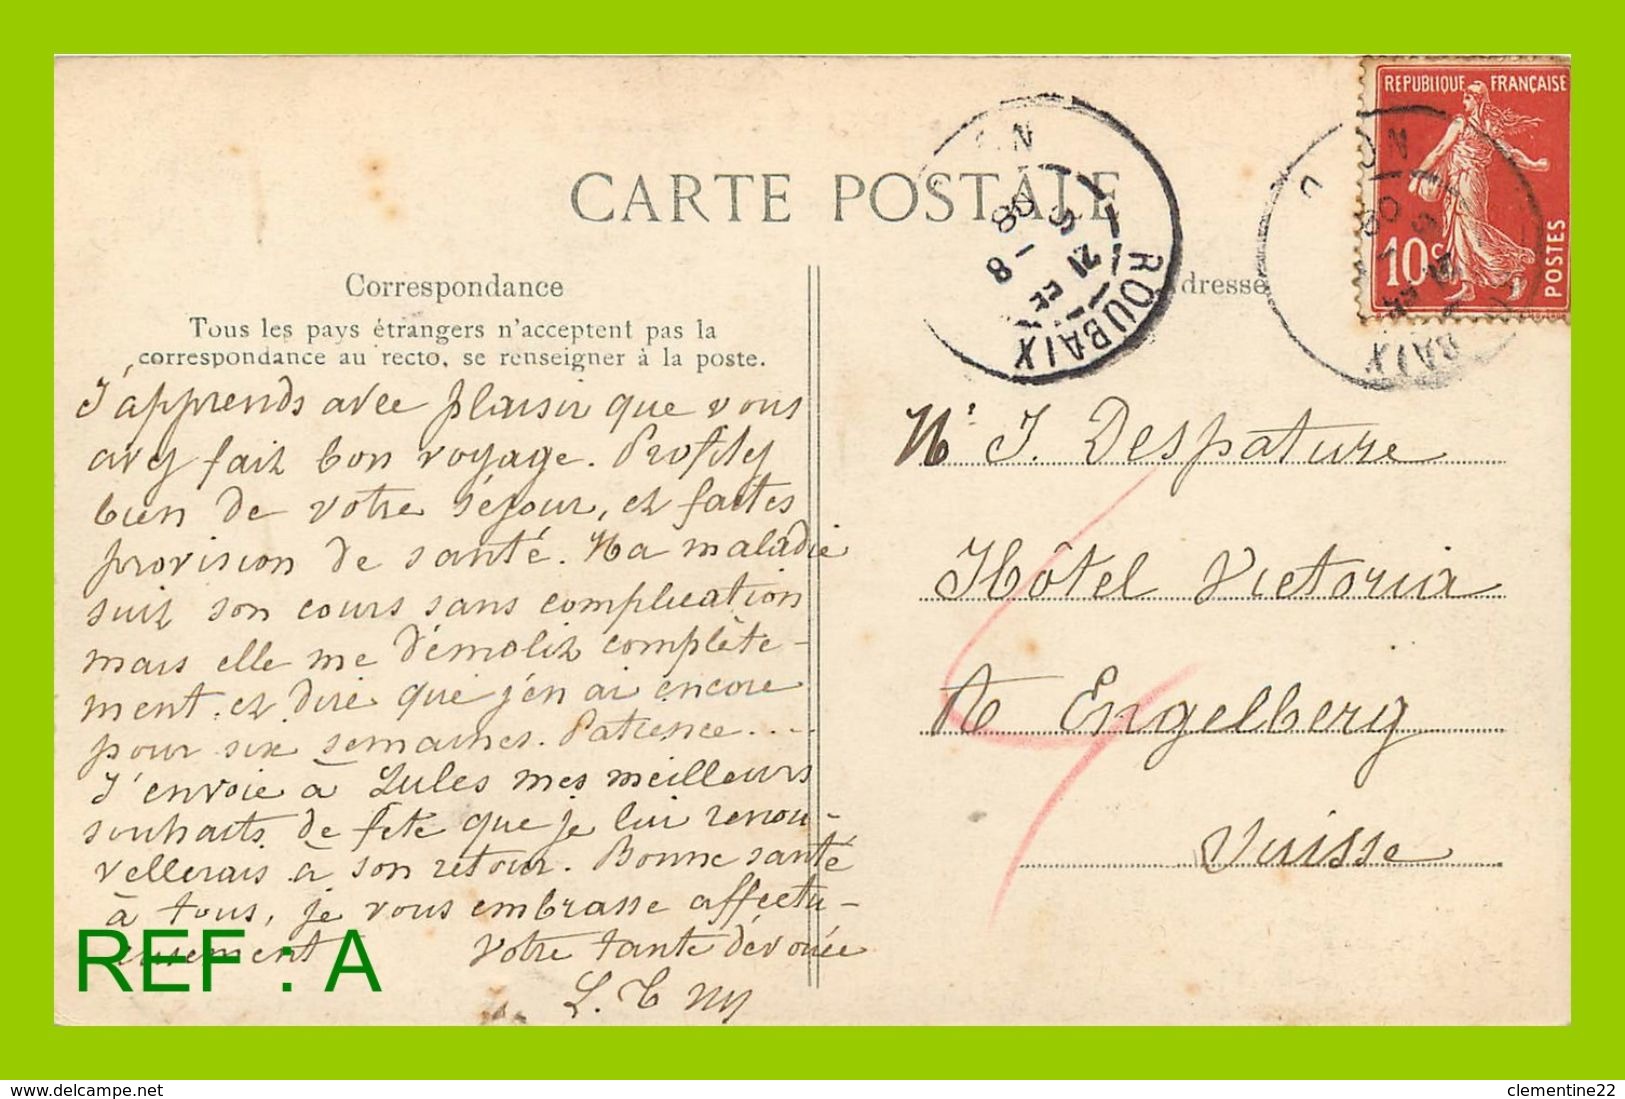 CARTE POSTALE
REPUBLIQUE FRANÇAISE
10c
POSTES
ROUBAIX
8 - 8
21
08
Correspondance
Tous les pays étrangers n'acceptent pas la
correspondance au recto, se renseigner à la poste.
dresse
J'apprends avec plaisir que vous
avez fait bon voyage. Profitez
bien de votre séjour, et faites
provision de santé. Ma maladie
suit son cours sans complication
mais elle me démolit complète-
ment. et dire que j'en ai encore
pour six semaines. Patience....
J'envoie à Jules mes meilleurs
souhaits de fête que je lui renou-
vellerais à son retour. Bonne santé
à tous, je vous embrasse affectu-
eusement Votre tante dévouée
M. J. Despature
Hôtel Victoria
Engelberg
Suisse
REF : A
www.delcampe.net
clementine22